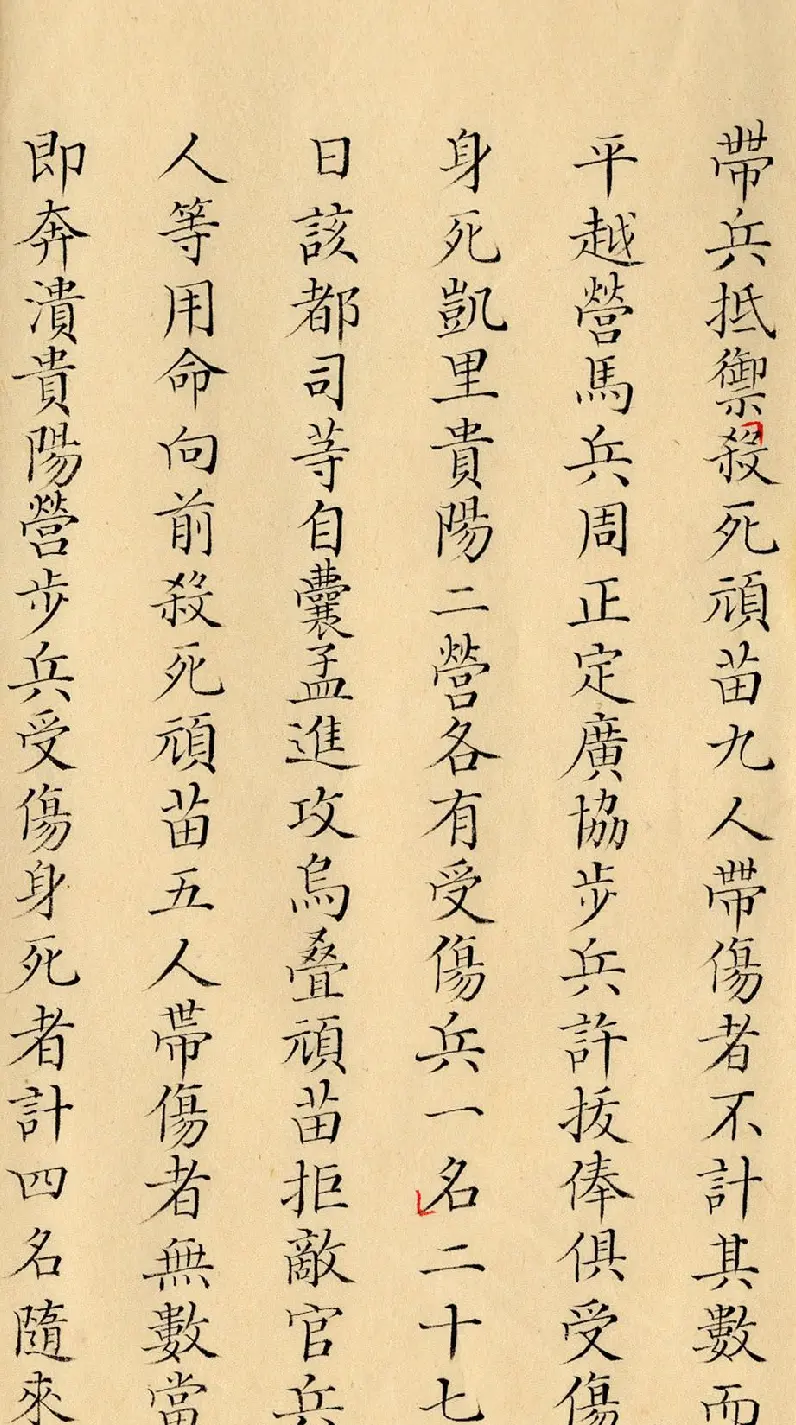 帶兵抵禦殺死頑苗九人帶傷者不計其數而
平越營馬兵周正定廣協步兵許拔俸俱受傷
身死凱里貴陽二營各有受傷兵一名二十七
日該都司等自囊孟進攻烏疊頑苗拒敵官兵
人等用命向前殺死頑苗五人帶傷者無數當
即奔潰貴陽營步兵受傷身死者計四名隨來